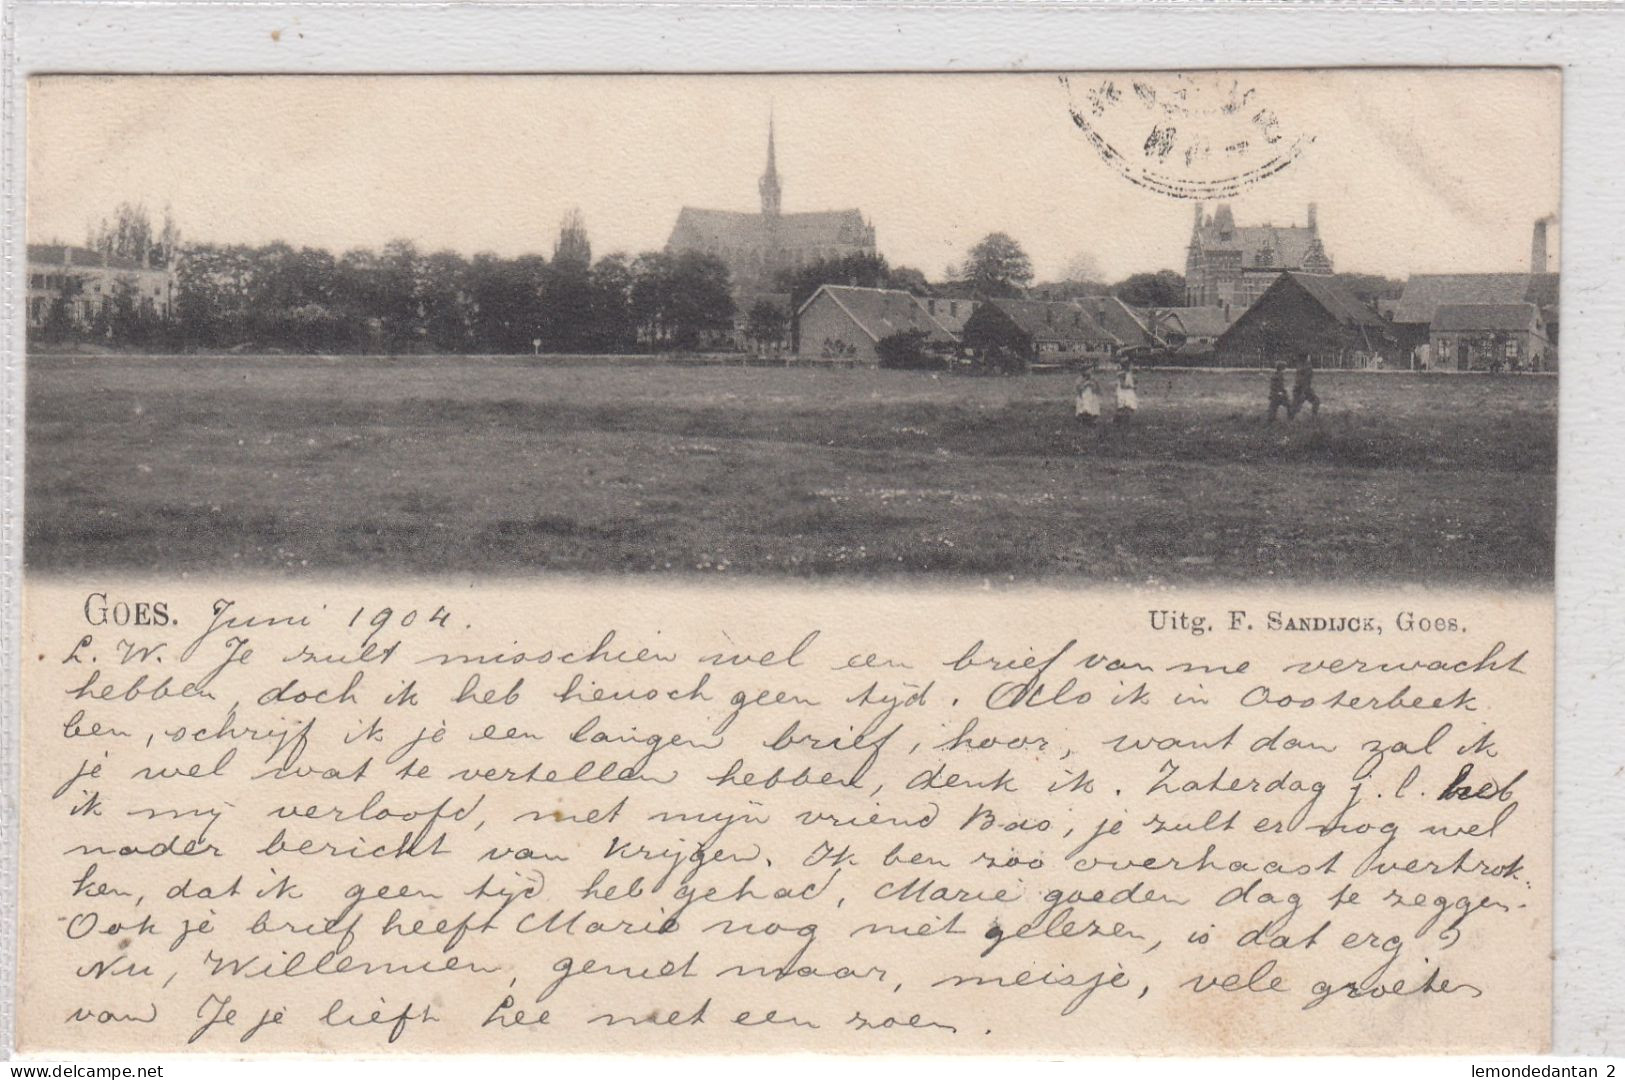 GOES. Juni 1904.
Uitg. F. SANDIJCK, Goes.
L. W. Je zult misschien wel een brief van me verwacht
hebben, doch ik heb heusch geen tijd. Als ik in Oosterbeek
ben, schrijf ik je een langen brief, hoor, want dan zal ik
je wel wat te vertellen hebben, denk ik. Zaterdag j.l. heb
ik mij verloofd, met mijn vriend Bas, je zult er nog wel
nader bericht van krijgen. Ik ben zoo overhaast vertrok-
ken, dat ik geen tijd heb gehad, Marie goeden dag te zeggen.
Ook je brief heeft Marie nog niet gelezen, is dat erg?
Nu, Willemien, geniet maar, meisje, vele groeten
van Je je lieft Lee met een zoen.
lemondedecartes.com
lemondedantan 2